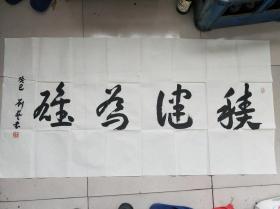 積健為雄
癸巳